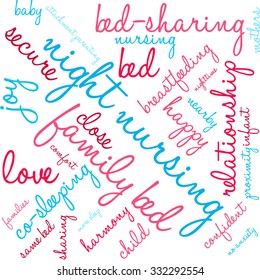 baby
attachment parenting
bed-sharing
mothers
nursing
secure
bed
joy
night nursing
breastfeeding
nighttime
relationship
nearby
happy
close
comfort
family bed
proximity
infant
love
co-sleeping
families
same bed
sharing
harmony
child
confident
332292554